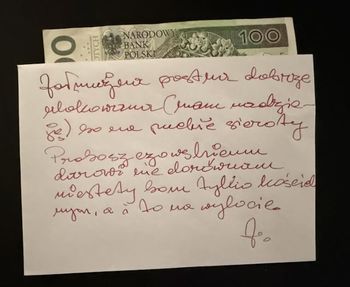 00
NARODOWY
BANK
POLSKI
100
Jałmużna postna dobrze
ulokowana (mam nadzie-
ję) bo na siostry
Proboszczowskiemu
darowi nie dorównam
niestety bom tylko kościel
nym, a i to na wylocie.